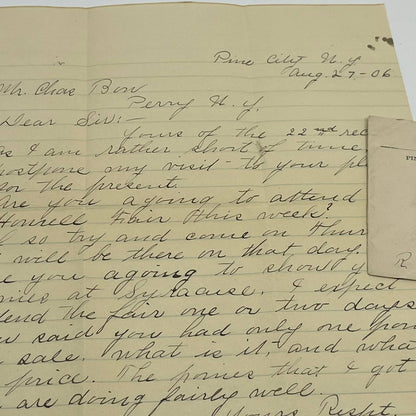 Pine City N.Y.
Aug. 27-06
Mr. Chas Bow
Perry N.Y.
Dear Sir:-
Yours of the 22nd rec
as I am rather short of time,
postpone my visit to your pl
for the present.
are you agoing to attend
Hornell Fair this week?
so try and come on Thur
will be there on that day.
you agoing to show y
onies at Syracuse. I expect
tend the fair one or two days
u said you had only one pon
sale. What is it, and wha
price. The ponies that I got
are doing fairly well.
Yours Respt.
FI
R